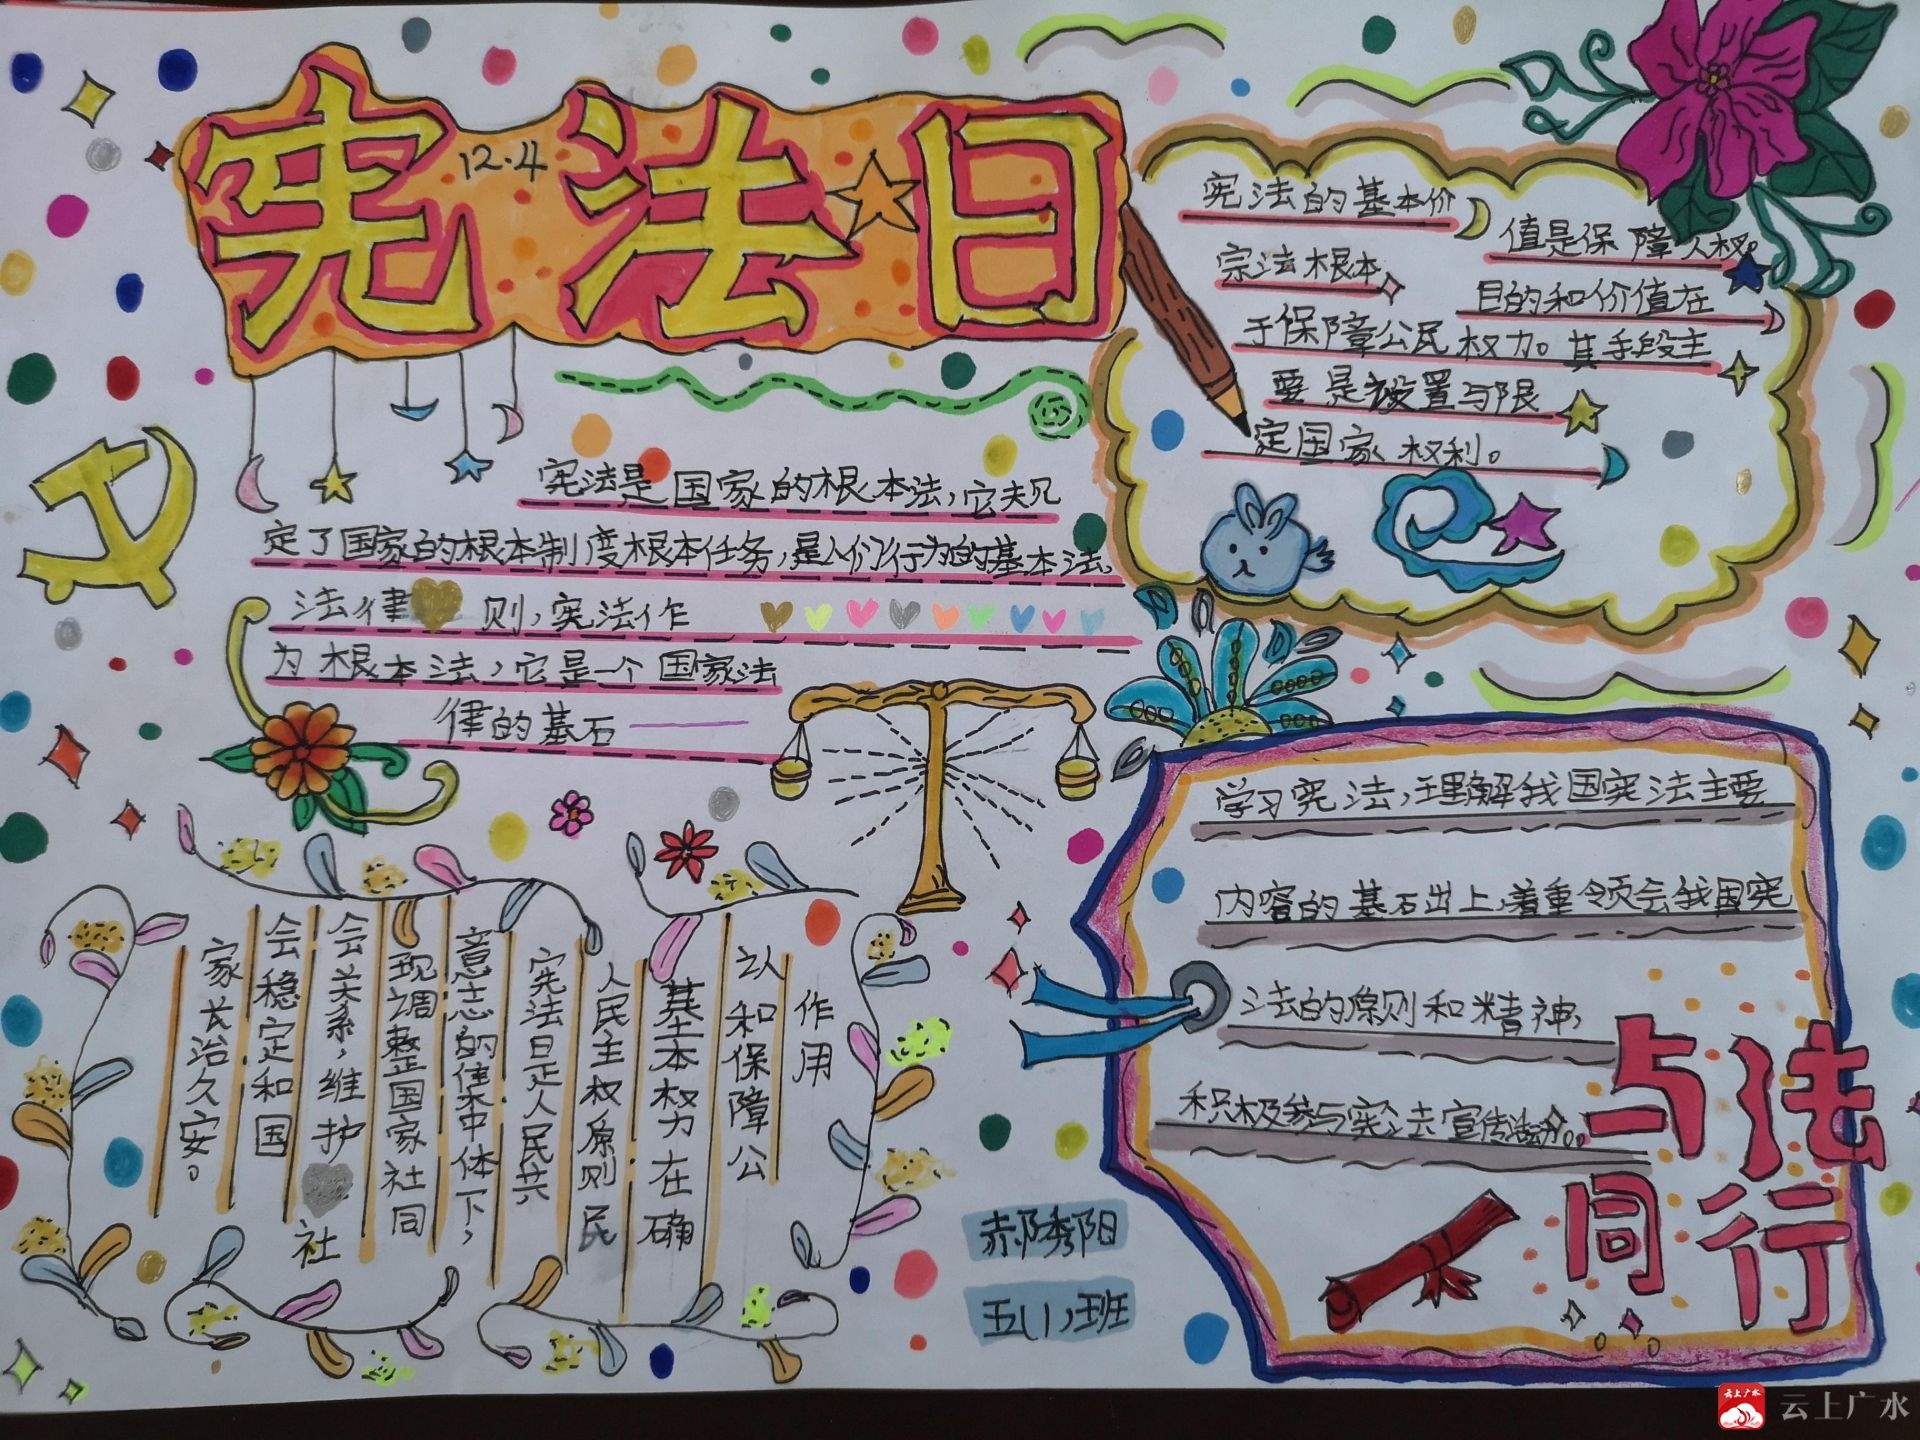 宪法日
12.4
宪法是国家的根本法,它规
定了国家的根本制度根本任务,是人们行为的基本法,
法律 则,宪法作
为根本法,它是一个国家法
律的基石
宪法的基本价
值是保障人权。
宗法根本
目的和价值在
于保障公民权力。其手段主
要是设置与限
定国家权利。
学习宪法,理解我国宪法主要
内容的基石出上,着重领会我国宪
法的原则和精神,
积极参与宪法宣传活动。
与法
同行
作用
以和保障公
基本权力在确
人民主权原则民
宪法日是人民共
意志的集中体下,
现调整国家社同
会关系,维护 社
会稳定和国
家长治久安。
郝隽阳
五(1)班
云上广水
云上广水